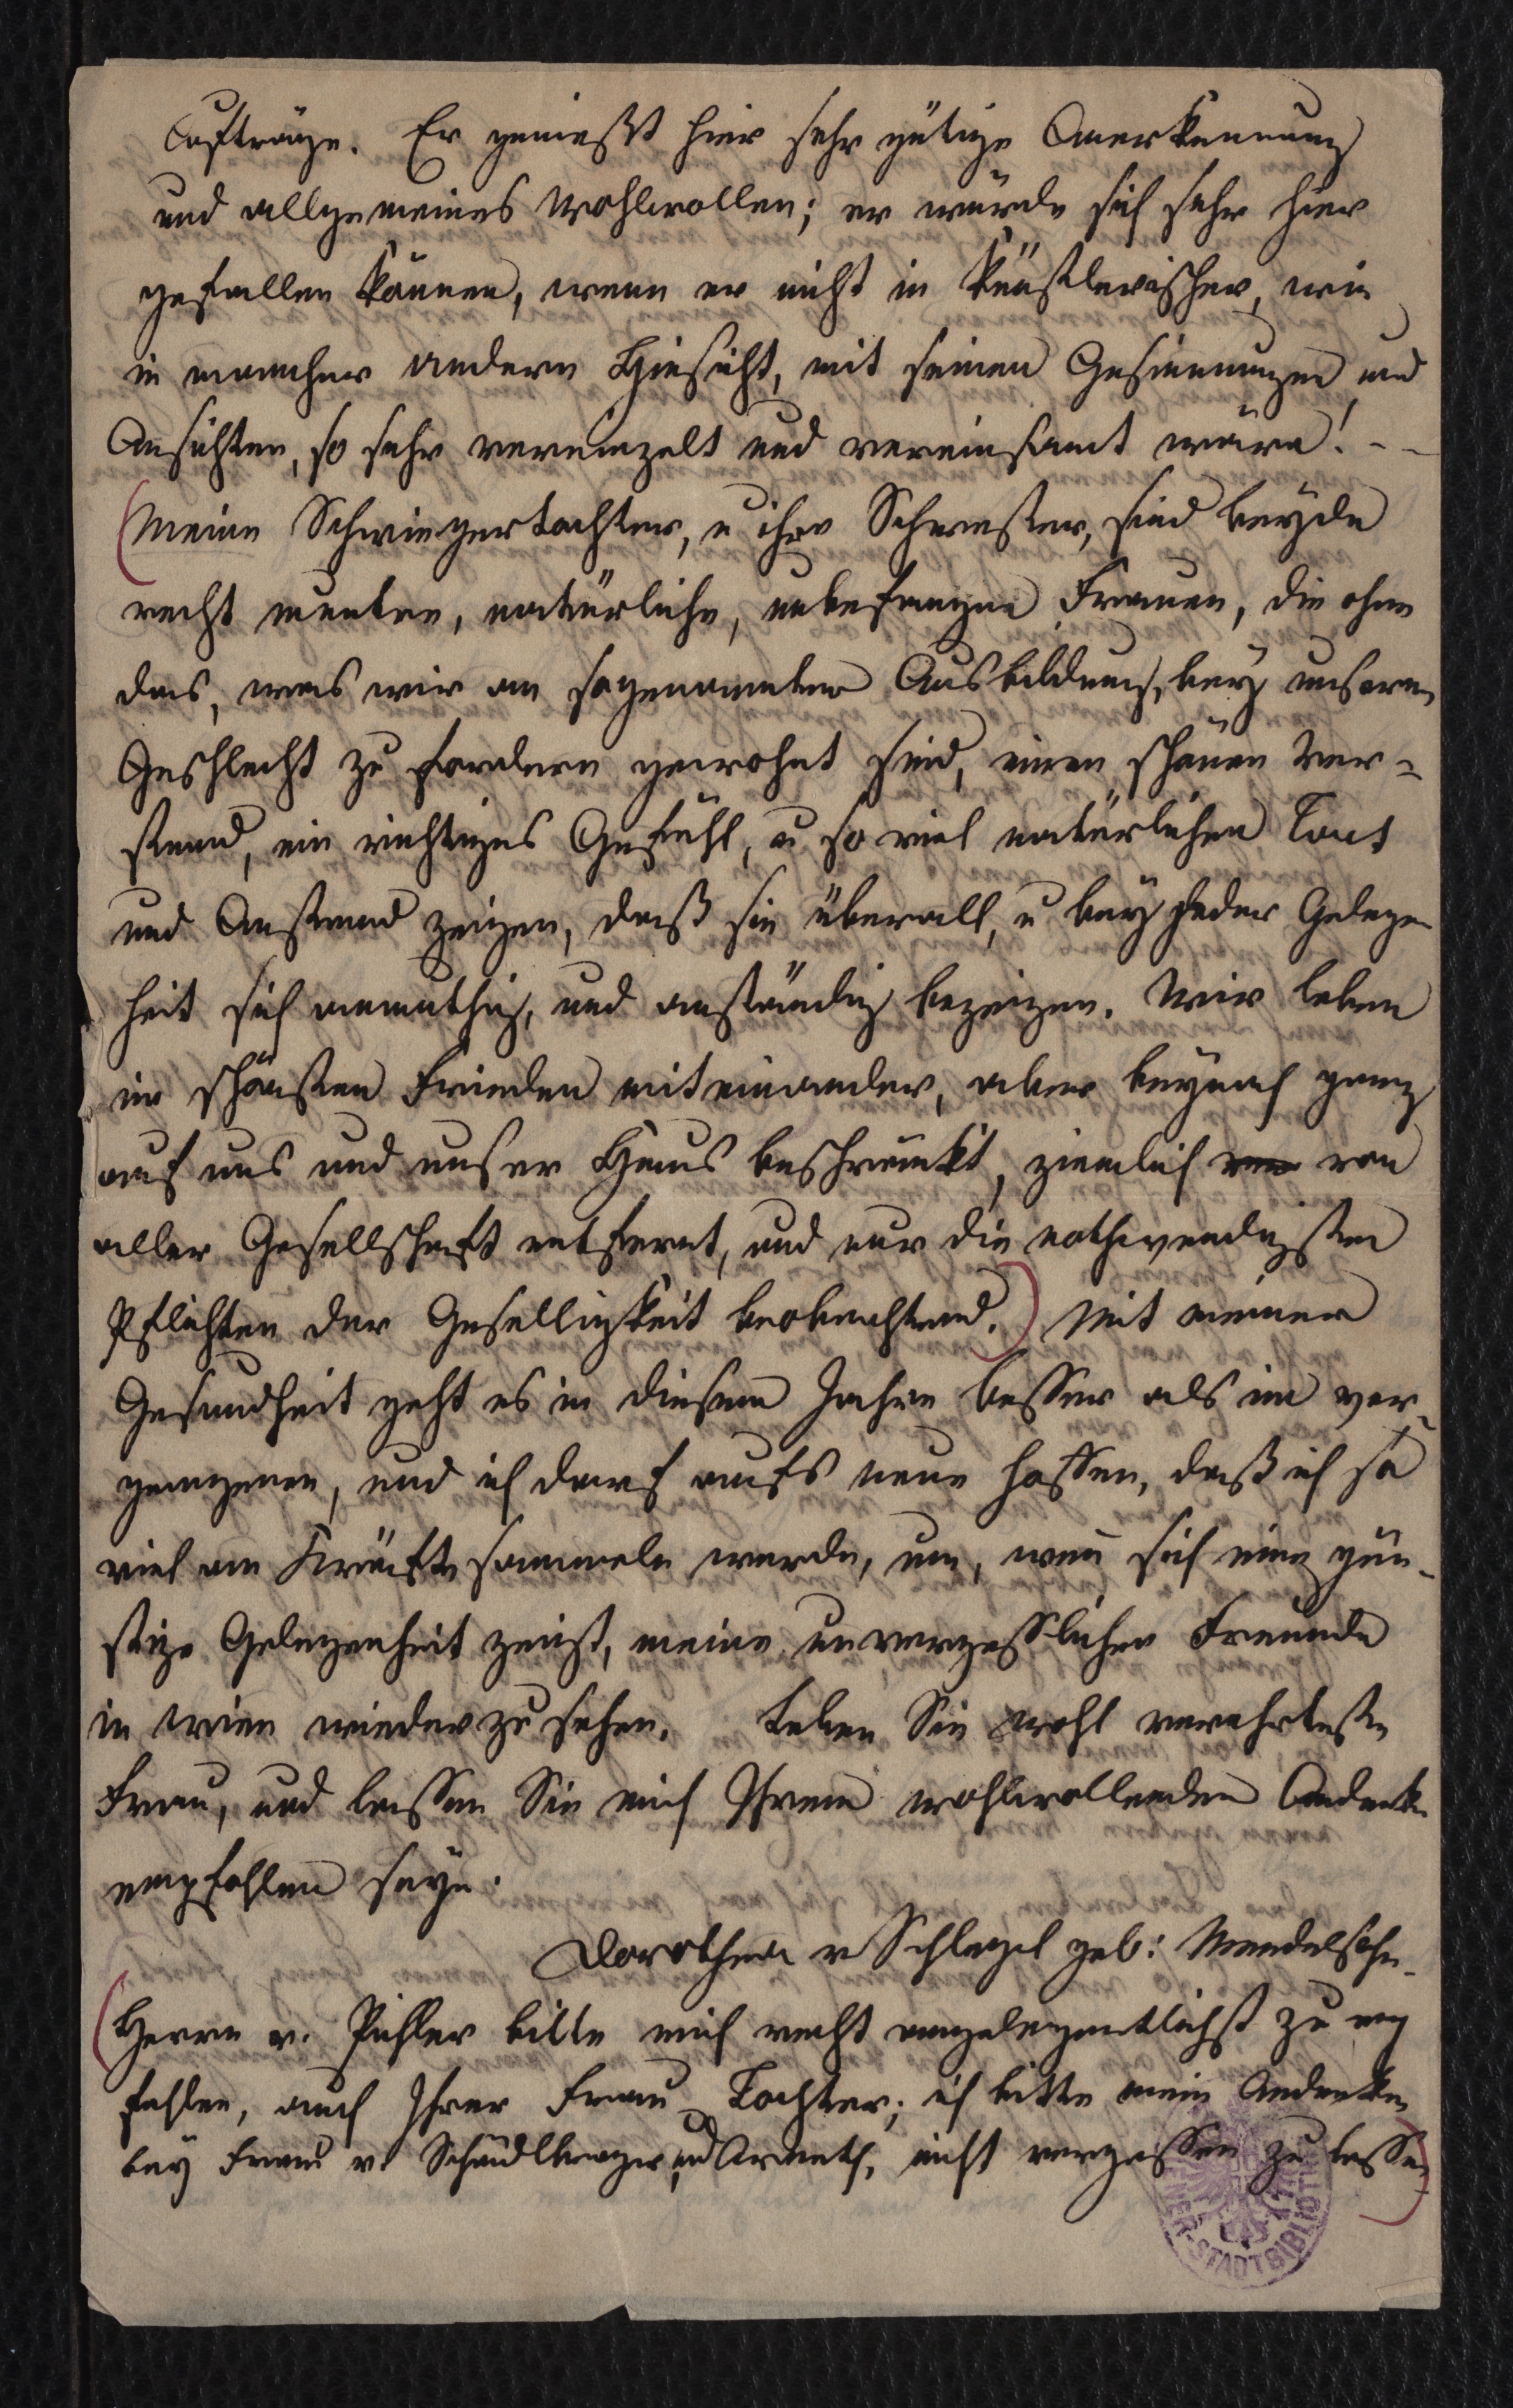 Aufträge. Er genießt hier sehr gütige Anerkennung
und allgemeines Wohlwollen; er würde sich sehr hier
gefallen können, wenn er nicht in künstlerischer, wie
in mancher andern Hinsicht, mit seinen Gesinnungen und
Ansichten, so sehr vereinzelt und vereinsamt wäre! - -
(Meine Schwiegertochter, u ihre Schwester, sind beyde
recht muntre, natürliche, unbefangne Frauen, die ohne
das, was wir an sogenannter Ausbildung, bey unserem
Geschlecht zu fordern gewohnt sind, einen schönen Ver-
stand, ein richtiges Gefühl, u so viel natürlichen Tact
und Anstand zeigen, daß sie überall, u bey jeder Gelegen
heit sich anmuthig, und anständig bezeigen. Wir leben
im schönsten Frieden miteinander, aber beynah ganz
auf uns und unser Haus beschränkt, ziemlich von
aller Gesellschaft entfernt, und nur die nothwendigsten
Pflichten der Geselligkeit beobachtend.) Mit meiner
Gesundheit geht es in diesem Jahre besser als im ver-
gangenen, und ich darf aufs neue hoffen, daß ich so
viel an Kräfte sammeln werde, um, wenn sich eine gün-
stige Gelegenheit zeigt, meine unvergesslichen Freunde
in Wien wiederzusehen. Leben Sie wohl verehrteste
Frau, und lassen Sie mich Ihrem wohlwollenden Andenken
empfohlen seyn.
Dorothea v Schlegel geb: Mendelsohn.
(Herrn v. Pichler bitte mich recht angelegentlichst zu emp
fehlen, auch Ihrer Frau Tochter; ich bitte mein Andenken
bey Frau v. Schödlberger und Arneth, nicht vergessen zu lassen)
STADTBIBLIOTH